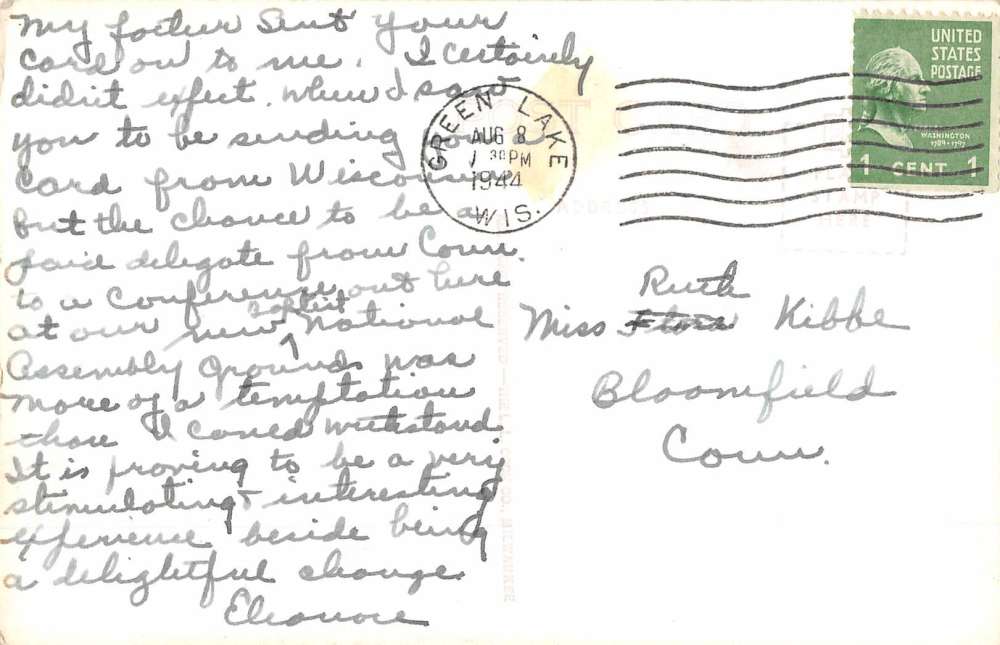 My father sent your
card on to me. I certainly
didn't expect when I saw
you to be sending you a
card from Wisconsin
but the chance to be a
paid delegate from Conn.
to a Conference out here
at our new Baptist National
Assembly Grounds was
more of a temptation
than I could withstand
It is proving to be a very
stimulating & interesting
experience beside being
a delightful change.
Eleanore
GREEN LAKE
AUG 8
30 PM
1944
WIS.
UNITED
STATES
POSTAGE
WASHINGTON
1789-1797
1 CENT 1
STAMP
HERE
Ruth
Miss Flora Kibbe
Bloomfield
Conn.